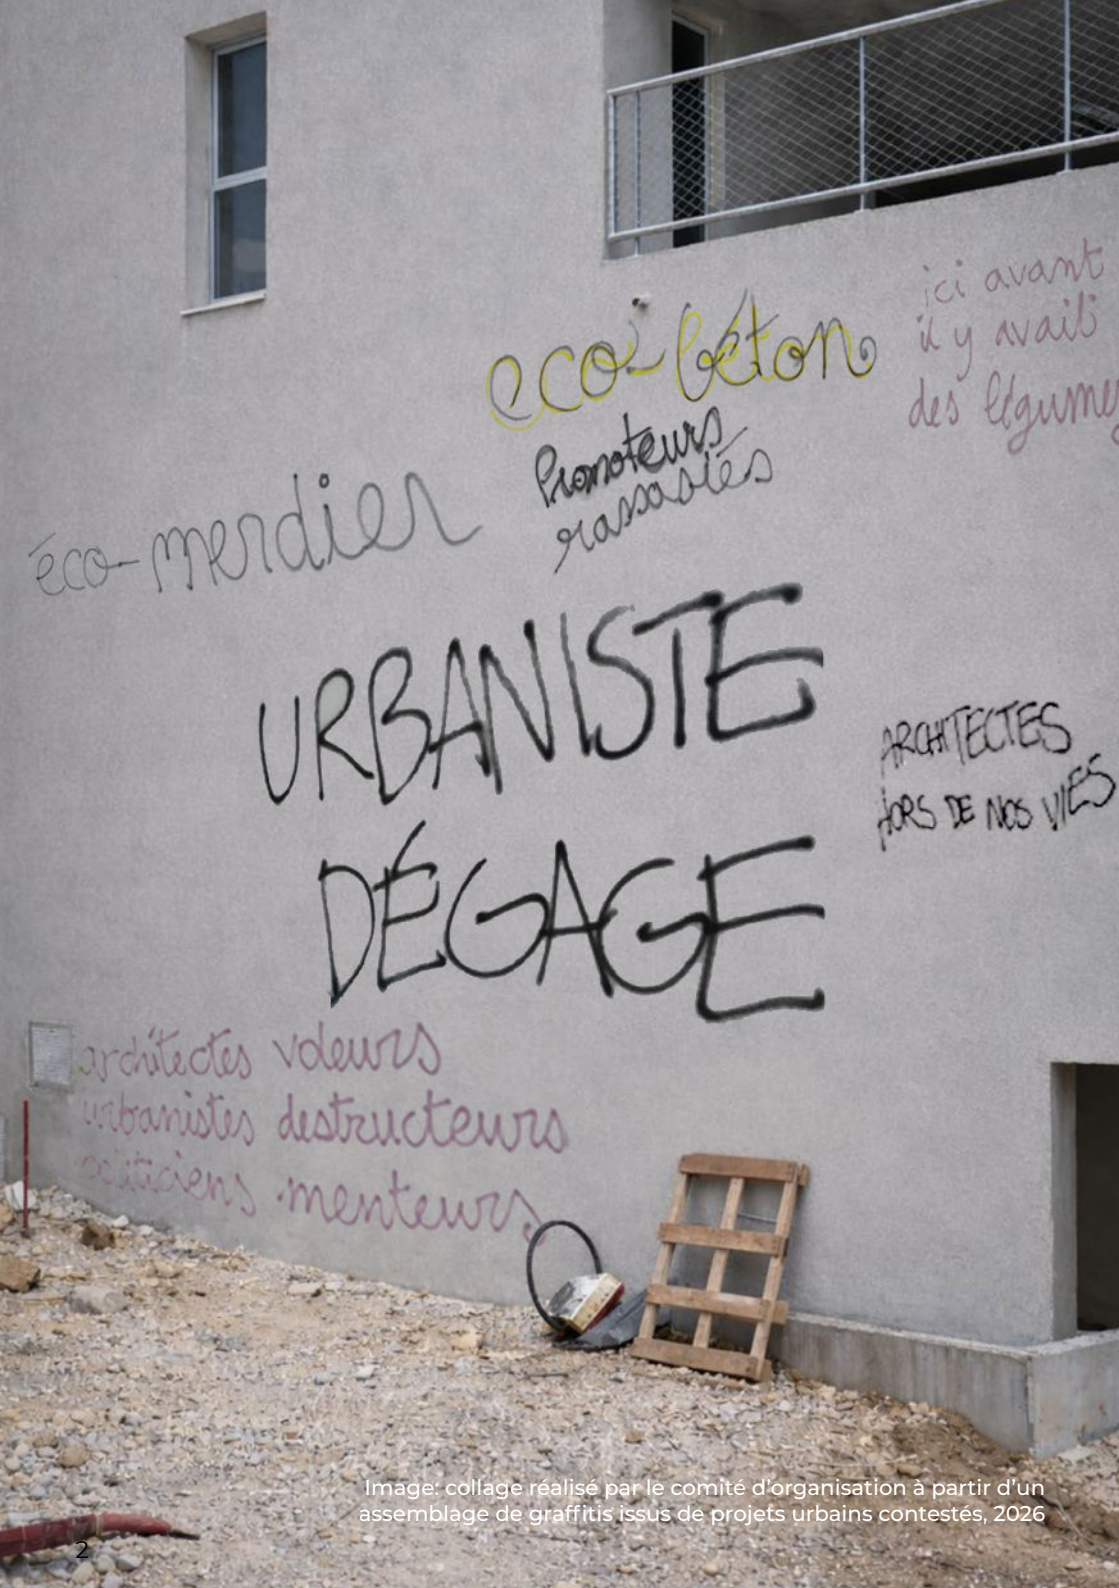 ici avant
il y avait
des légumes
eco-béton
Promoteurs
rassasiés
éco-merdier
URBANISTE
DÉGAGE
ARCHITECTES
HORS DE NOS VIES
architectes voleurs
urbanistes destructeurs
politiciens menteurs
Image: collage réalisé par le comité d'organisation à partir d'un
assemblage de graffitis issus de projets urbains contestés, 2026
2